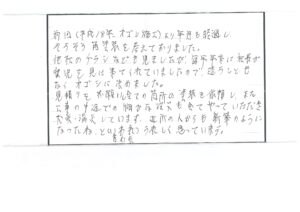 前回(平成18年、オゴシ施工)より年月も経過し
そろそろ再塗装を考えておりました。
他社のチラシなども見ましたが、
見に来てくれていましたので、迷うことも
なくオゴシに決めました。
見積りをお願いし全ての箇所の塗装を依頼し、また
工事の途中での細かな注文も全てやっていただき
大変満足しています。近所の人からも新築のように
なったね、と言われうれしく思っています。